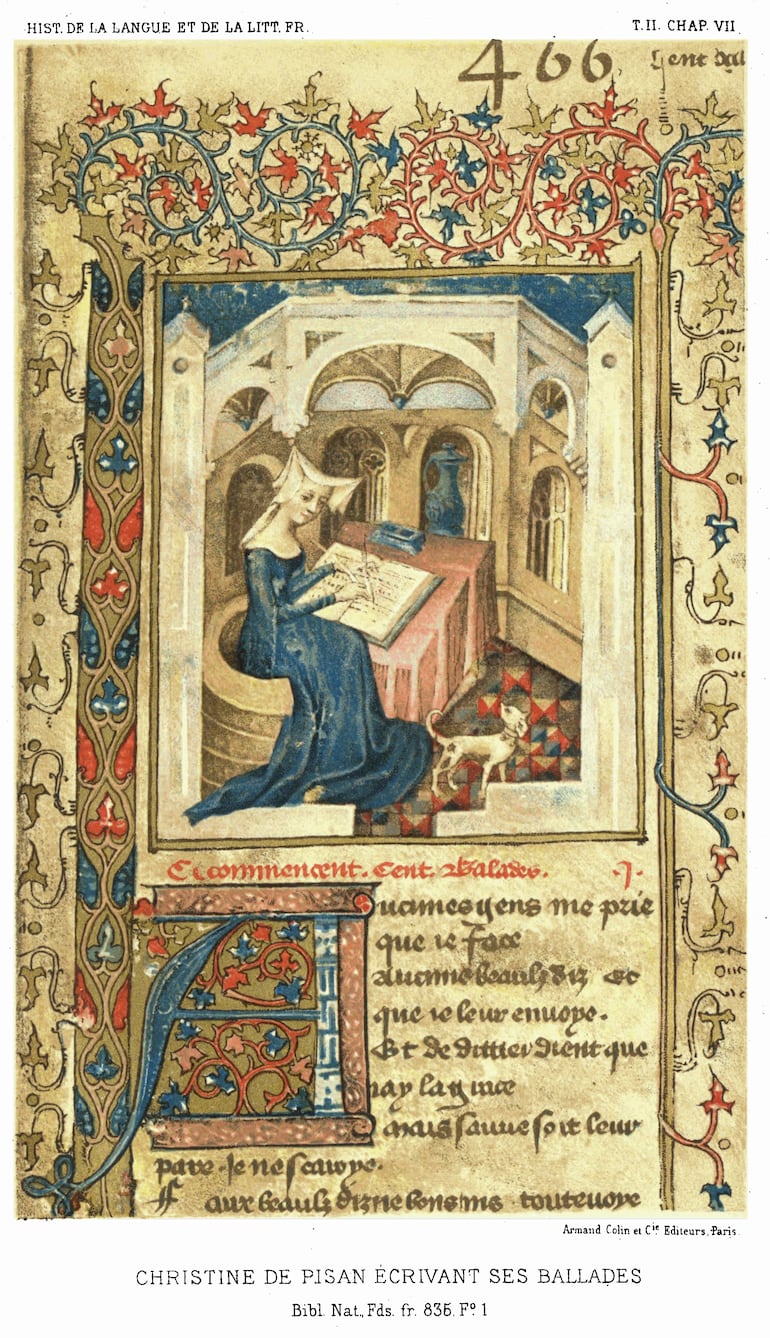 HIST. DE LA LANGUE ET DE LA LITT. FR.
T. II. CHAP. VII
466
Cy commencent. Cent. Balades. .J.
Aucunes gens me prie
que ie face
Aucuns beaulz diz et
que ie leur envoye.
Et de dittier dient que
iay la grace
Mais sauve soit leur
Je ne scavoye.
beaulz diz ne bons toutevoye
Armand Colin et Cie Editeurs, Paris.
CHRISTINE DE PISAN ÉCRIVANT SES BALLADES
Bibl. Nat., Fds. fr. 835. Fº 1